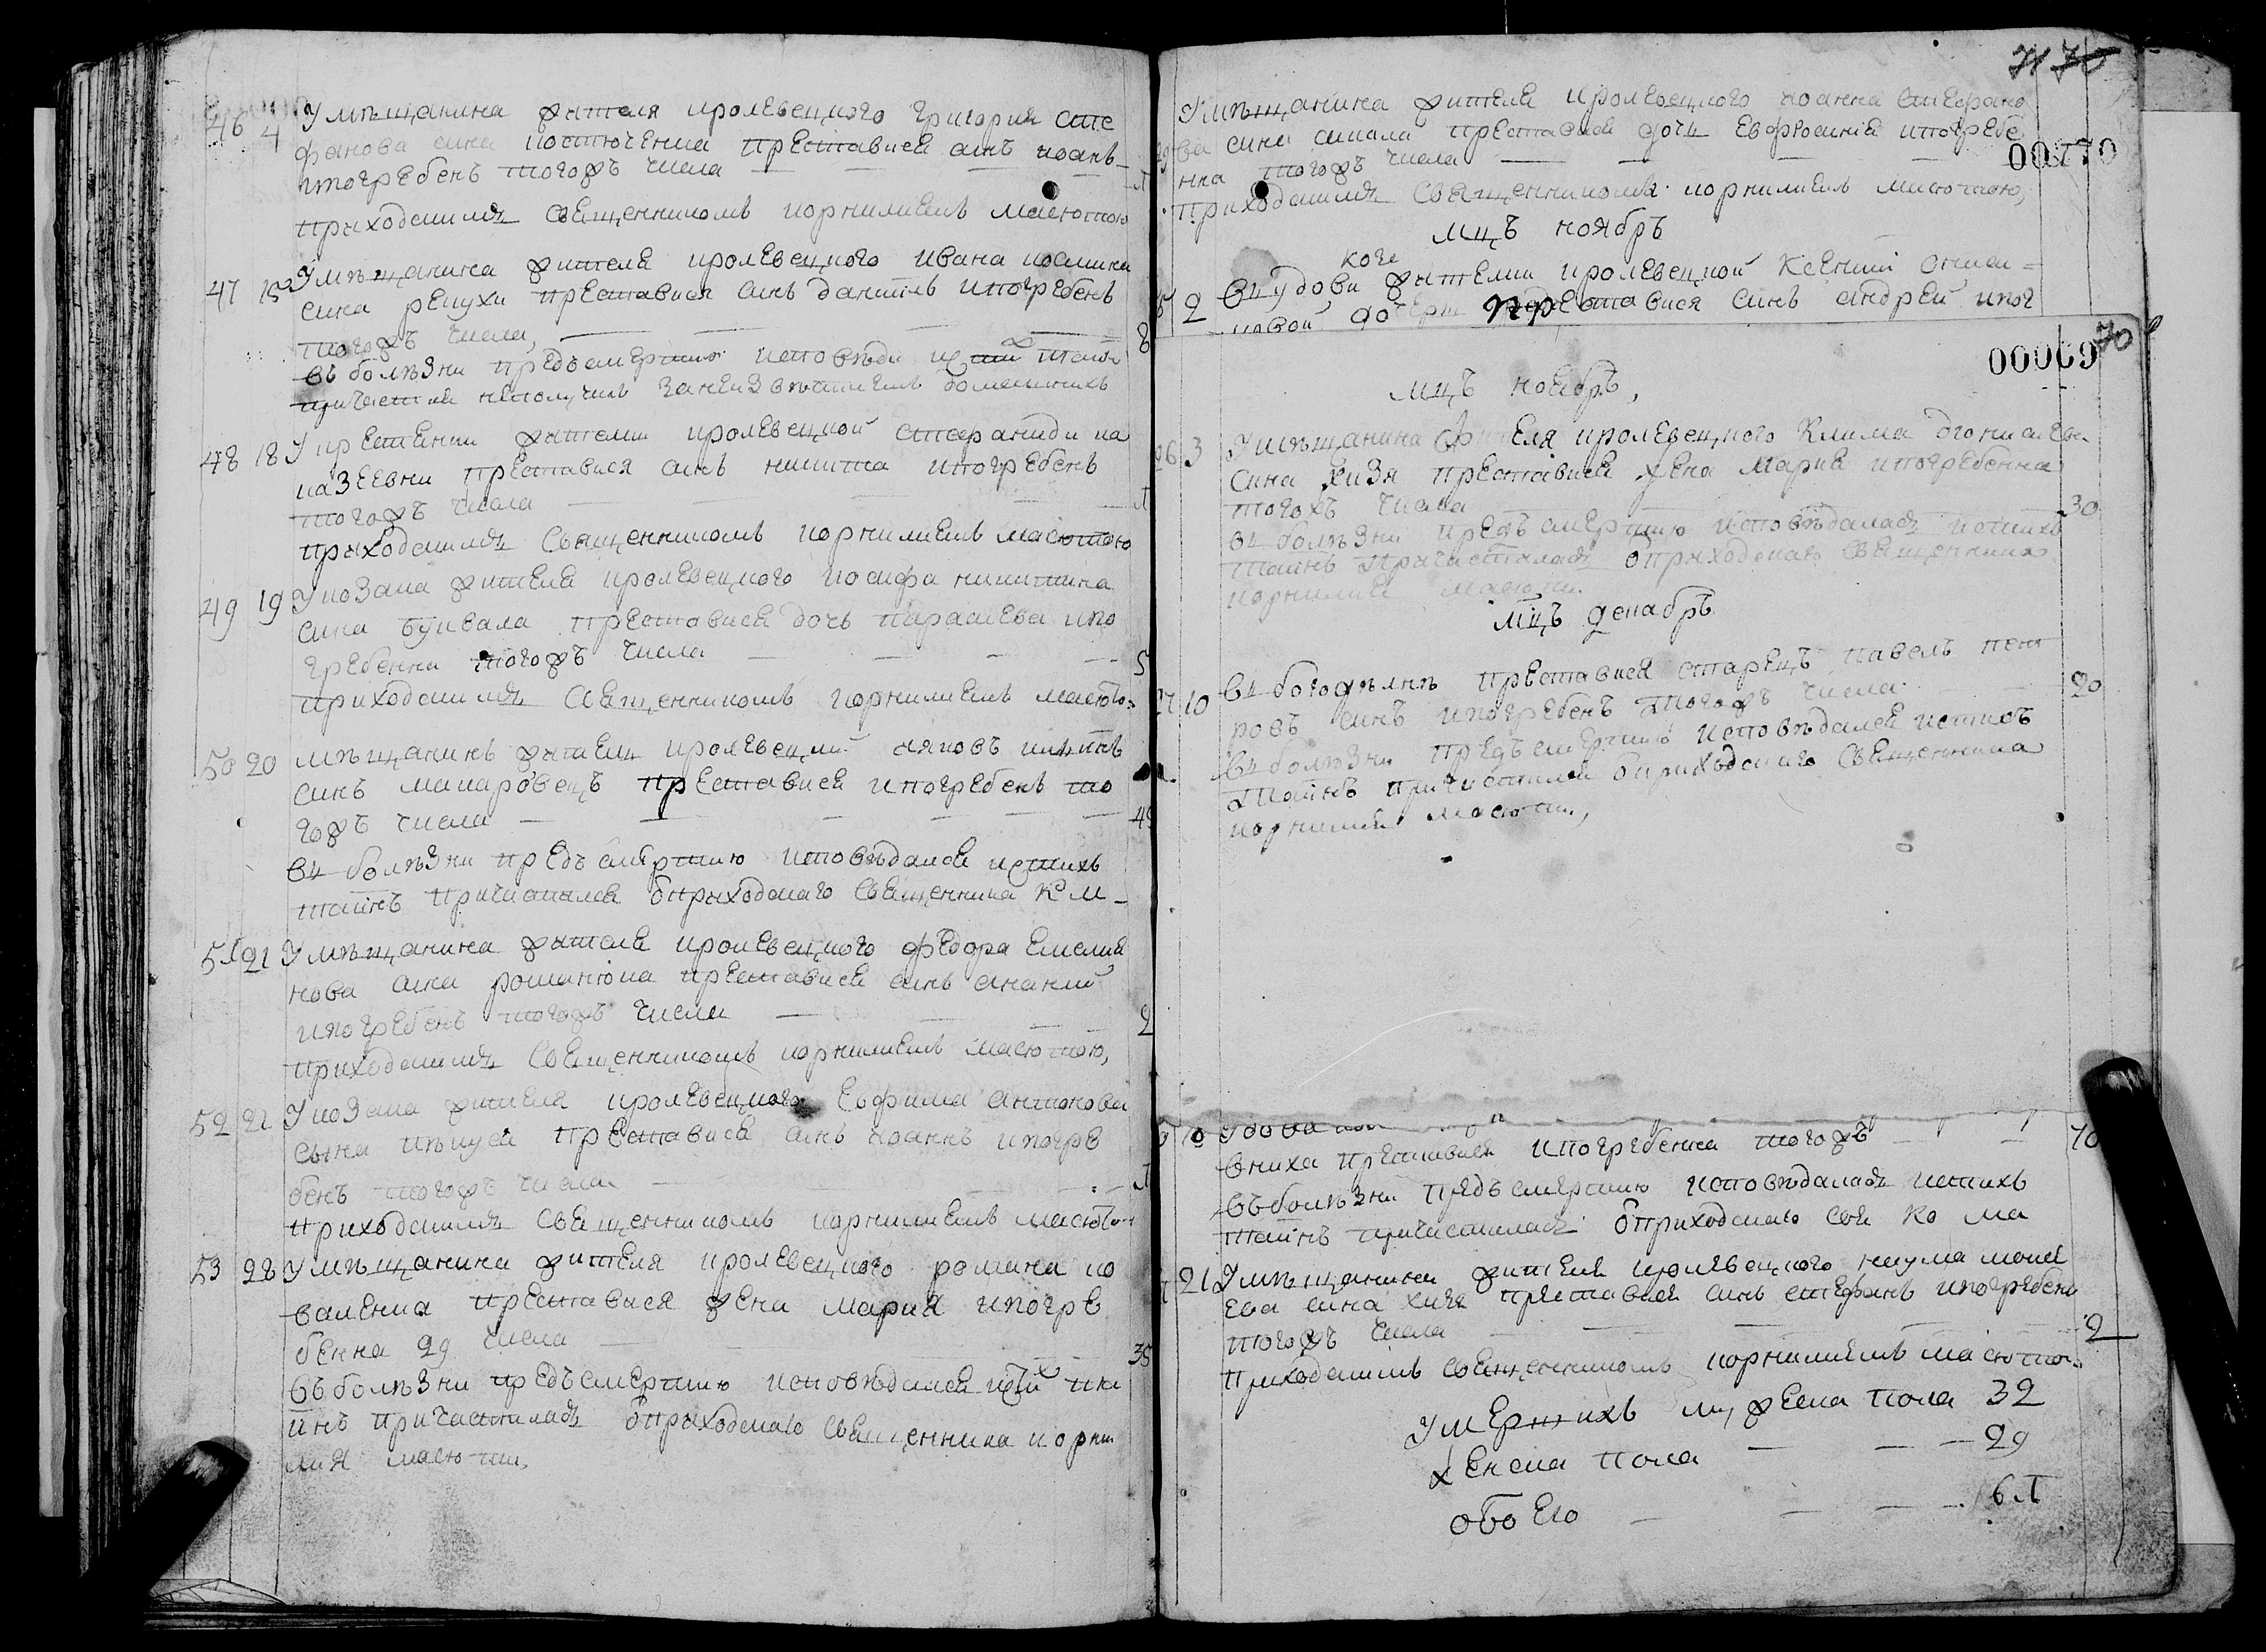 46 4 У мѣщанина жителя кролевецкого Григория Сте
фанова сина костюченка преставися синъ иоанъ
ипогребенъ тогожъ числа 1
приходскимъ священникомъ корнилиемъ масютою
47 15 У мѣщанина жителя кролевецкого Ивана космина
сина репухи преставися синъ даниилъ ипогребенъ
тогожъ числа, 8
въ болѣзни предъсмертию исповѣди и стих таин
причастия неполучилъ за неизвѣстиемъ домашнихъ
48 18 У крестянки жителки кролевецкой стефаниди ка
казеевни преставися синъ никита ипогребенъ
тогожъ числа 1
приходскимъ священникомъ корнилиемъ масютою
49 19 У козака жителя кролевецкого иосифа никитина
сина буивала преставися дочь параскева ипо
гребенна тогожъ числа 5
приходскимъ священникомъ корнилиемъ масюто
50 20 мѣщанинъ житель кролевецкий яковъ
синъ макаровецъ преставися ипогребенъ то
гожъ числа 45
въ болѣзни предъ смертию исповѣдался и стихъ
таинъ причащался ѿприходского священника К М
51 21 У мѣщанина жителя кролевецкого федора Емелия
нова сина романюка преставися синъ ананий
ипогребенъ тогожъ числа 2
приходскимъ священникомъ корнилиемъ масютою,
52 21 У козака жителя кролевецкого Евфима антонова
сына преставися синъ иоаннъ ипогре
бенъ тогожъ числа 1
приходскимъ священникомъ корнилиемъ масюто
53 28 У мѣщанина жителя кролевецкого романа ко
валенка преставися жена мария ипогре
бенна 29 числа 35
въ болѣзни предъсмертию исповѣдалася и стих та
инъ причастиласъ ѿприходского священника корни
лия масюти,
71 70
У мѣщанина жителя кролевецкого иоанна Стефано
ва сина преставися дочь евфросиния ипогребе
нна тогожъ числа
00770
приходскимъ священникомъ корнилиемъ масютою,
мцъ ноябръ
2 въ удови жителки кролевецкой Ксении
преставися синъ андрей ипог
70
00069
мцъ ноябръ,
26 3 У мѣщанина жителя кролевецкого Клима
сина хизя преставися жена Мария ипогребенна
тогожъ числа 30
въ болѣзни предъ смертию исповѣдаласъ и стихъ
таинъ причастиласъ ѿприходского священника
корнилия масюти.
мцъ декабръ
27 10 въ богодѣлнѣ преставися старецъ павелъ пет
ровъ синъ ипогребенъ тогожъ числа 20
въ болѣзни предъсмертию исповѣдался и стихъ
таинъ причастился ѿприходского священника
корнилия масюти,
10
вниха преставися ипогребенна тогожъ 70
въ болѣзни предъ смертию исповѣдаласъ и стихъ
таинъ причастиласъ ѿприходского свя Ко Ма
21 У мѣщанина жителя кролевецкого наума моисе
ева сина хизя преставися синъ стефанъ ипогребенъ
тогожъ числа 2
приходскимъ священникомъ корнилиемъ масютою
Умершихъ мужеска пола 32
женска пола 29
обоего 61